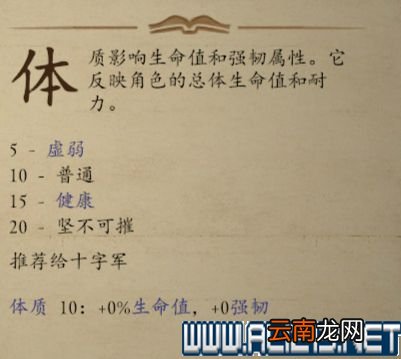 体
质影响生命值和强韧属性。它
反映角色的总体生命值和耐
力。
5 - 虚弱
10 - 普通
15 - 健康
20 - 坚不可摧
推荐给十字军
体质 10：+0%生命值，+0强韧
云南龙网